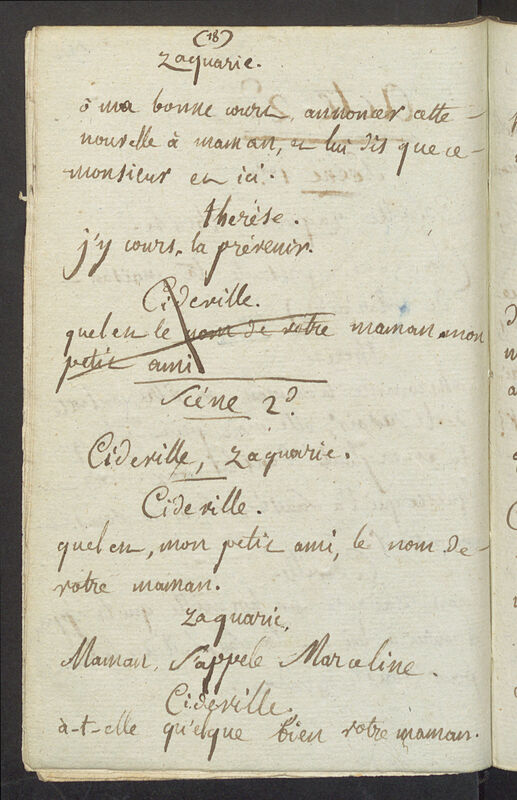 (18)
Zaquarie.
ô ma bonne cours, annoncer cette
nouvelle à maman, et lui dis que ce
monsieur est ici.
therése.
j'y cours, la prévenir.
Cideville.
quel est le nom de votre maman mon
petit ami
Scéne 2.d
Cideville, Zaquarie.
Cideville.
quel est, mon petit ami, le nom de
votre maman.
Zaquarie,
Maman, S'appele Marceline.
Cideville.
à-t-elle qu'elque bien votre maman.